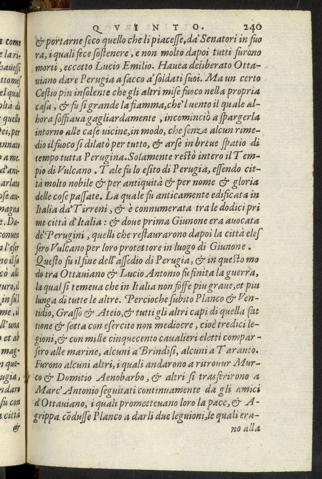 QVINTO. 240
& portarne seco quello che li piacesse, da' Senatori in fuo
ra, i quali fece sostenere, e non molto dapoi tutti furono
morti, eccetto Lucio Emilio. Haueua deliberato Otta-
uiano dare Perugia a sacco a' soldati suoi. Ma un certo
Cestio piu insolente che gli altri mise fuoco nella propria
casa, & fu sì grande la fiamma, che'l uento il quale al-
hora soffiaua gagliardamente, incominciò a spargerla
intorno alle case uicine, in modo, che senza alcun rime-
dio il fuoco si dilatò per tutto, & arse in breue spatio di
tempo tutta Perugina. Solamente restò intero il Tem-
pio di Vulcano. Tale fu lo esito di Perugia, essendo cit-
tà molto nobile & per antiquità & per nome & gloria
delle cose passate. La quale fu anticamente edificata in
Italia da' Tirreni, & è connumerata tra le dodici pri
me città d'Italia: & doue prima Giunone era auocata
de' Perugini, quelli che restaurarono dapoi la città eles
sero Vulcano per loro protettore in luogo di Giunone.
Questo fu il fine dell'assedio di Perugia, & in questo mo
do tra Ottauiano & Lucio Antonio fu finita la guerra,
la qual si temeua che in Italia non fosse piu graue, et piu
lunga di tutte le altre. Percioche subito Planco & Ven-
tidio, Grasso & Ateio, & tutti gli altri capi di quella fat
tione & setta con esercito non mediocre, cioè tredici le-
gioni, & con mille cinquecento cauallieri eletti compar-
sero alle marine, alcuni a' Brindisi, alcuni a Taranto.
Furono alcuni altri, i quali andarono a ritrouar Mur-
co & Domitio Aenobarbo, & altri si trasferirono a
Marc' Antonio seguitati continuamente da gli amici
d'Ottauiano, i quali prometteuano loro la pace, & A-
grippa cõdusse Planco a darli due legioni, le quali era-
no alla